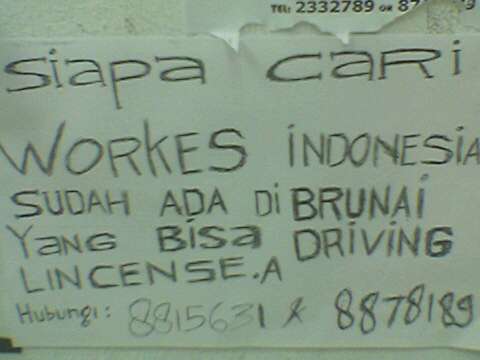 TEL: 2332789 OR 87
SiAPA CARi
WORKES iNDONESiA
SUDAH ADA Di BRUNAi
YANG BiSA DRIVING
LINCENSE.A
Hubungi: 8815631 & 8878189